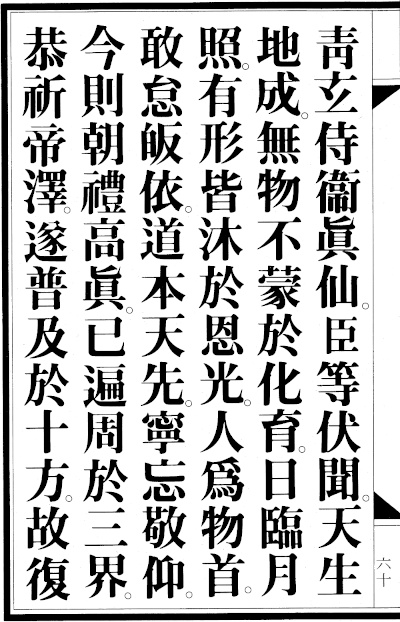 靑玄侍衞眞仙。臣等伏聞。天生
地成。無物不蒙於化育。日臨月
照。有形皆沐於恩光。人爲物首。
敢怠皈依。道本天先。寧忘敬仰。
今則朝禮高眞。已遍周於三界。
恭祈帝澤。遂普及於十方。故復
六十